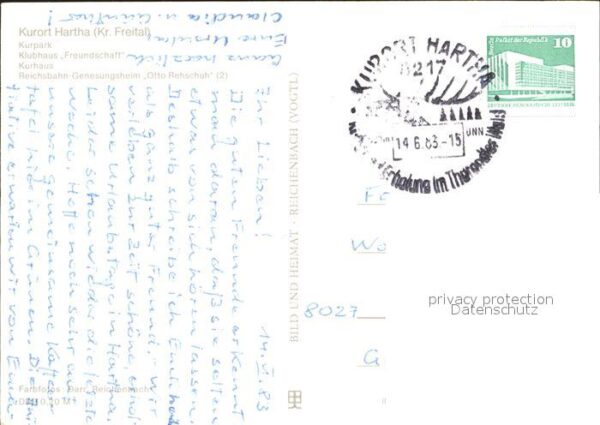 Kurort Hartha (Kr. Freital)
Kurpark
Klubhaus „Freundschaft"
Kurhaus
Reichsbahn-Genesungsheim „Otto Rehschuh" (2)
14. VI. 83
Ihr Lieben!
Die guten Freunde erkennt
man daran, daß sie selten
etwas von sich hören lassen.
Deshalb schreibe ich Euch
als ganz guter Freund. Wir
verleben zur Zeit schöne
same Urlaubstage in Hartha.
Leider schon wieder die letzte
Woche. Hoffe nun sehr auf
unsere gemeinsame Kaffee-
tafel hier im Grünen. Die
erwarten wir von Euch.
Ganz herzlich
Eure Ursula
Claudia u. Günther!
Farbfotos: Darr, Reichenbach
0,20 M
BILD UND HEIMAT · REICHENBACH (VOGTL)
KURORT HARTHA
8217
14.6.83-15
Erholung im Tharandter Wald
Berlin Palast der Republik
10
DDR
8027
privacy protection
Datenschutz